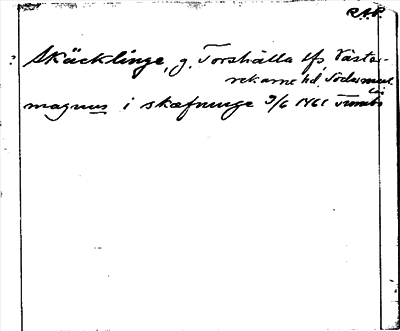 R.A.P.
? Skäcklinge, g. Torshälla lfs, Väster-
rekarne hd, Södermanl.
län
magnus i skæfnunge 9/6 1461